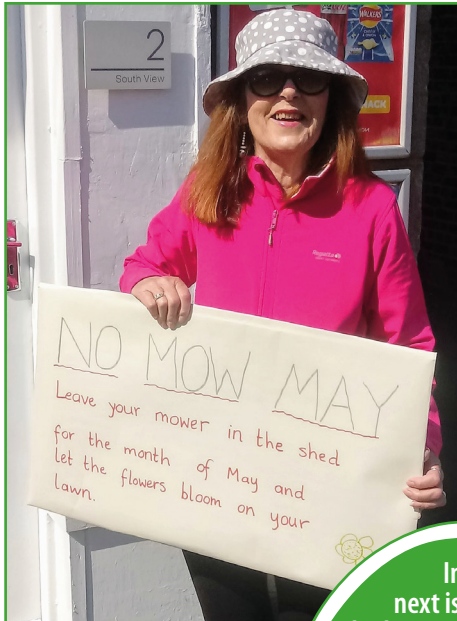 2
South View
WALKERS
Regatta
NO MOW MAY
Leave your mower in the shed
for the month of May and
let the flowers bloom on your
lawn.
In
next is